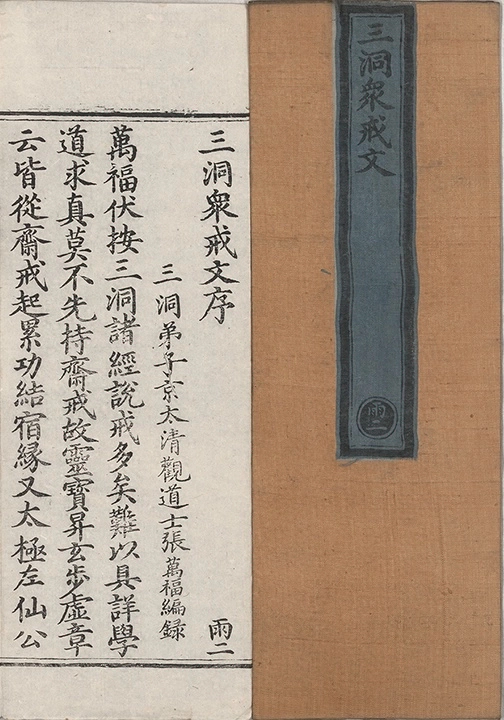 三洞衆戒文
雨二
三洞衆戒文序
雨二
三洞弟子京太清觀道士張萬福編録
萬福伏按三洞諸經說戒多矣難以具詳學
道求真莫不先持齋戒故靈寶昇玄步虛章
云皆從齋戒起累功結宿緣又太極左仙公